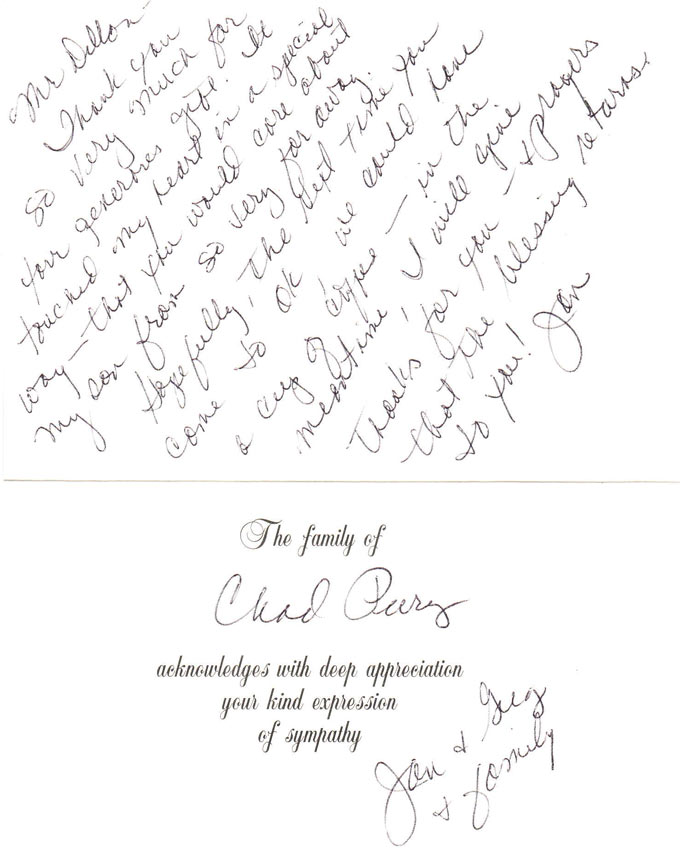 Mr Dillon
Thank you
so very much for
your generous gift. It
touched my heart in a special
way - that you would care about
my son from so very far away.
Hopefully, the next time you
come to OK we could have
a cup of coffee - in the
meantime, I will give
thanks for you - + prayers
that the blessing returns
to you! Jan
The family of
Chad
acknowledges with deep appreciation
your kind expression
of sympathy
Jan + Greg
+ family